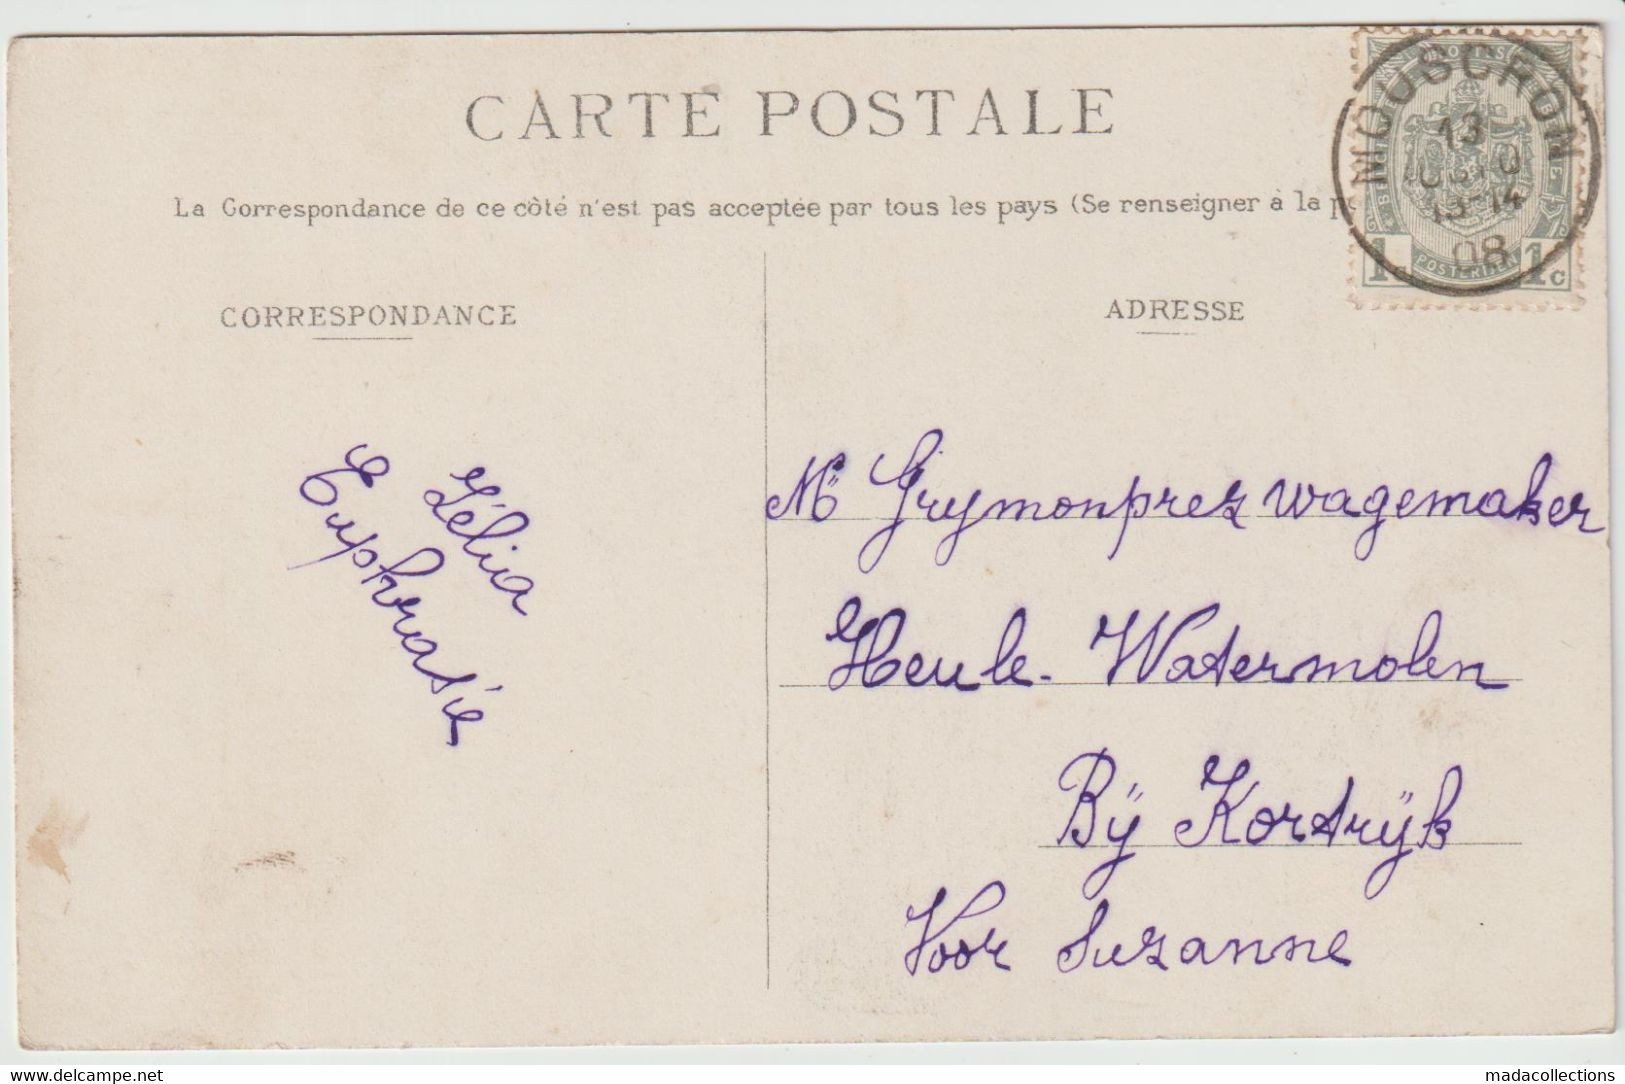 CARTE POSTALE
La Correspondance de ce côté n'est pas acceptée par tous les pays (Se renseigner à la
CORRESPONDANCE
ADRESSE
MOUSCRON
13
13-14
08
POSTERIJEN
1c 1c
Zélia
Euphrasie
Mr Grymonprez wagemaker
Heule. Watermolen
Bÿ Kortrÿk
Voor Suzanne
www.delcampe.net
madacollections